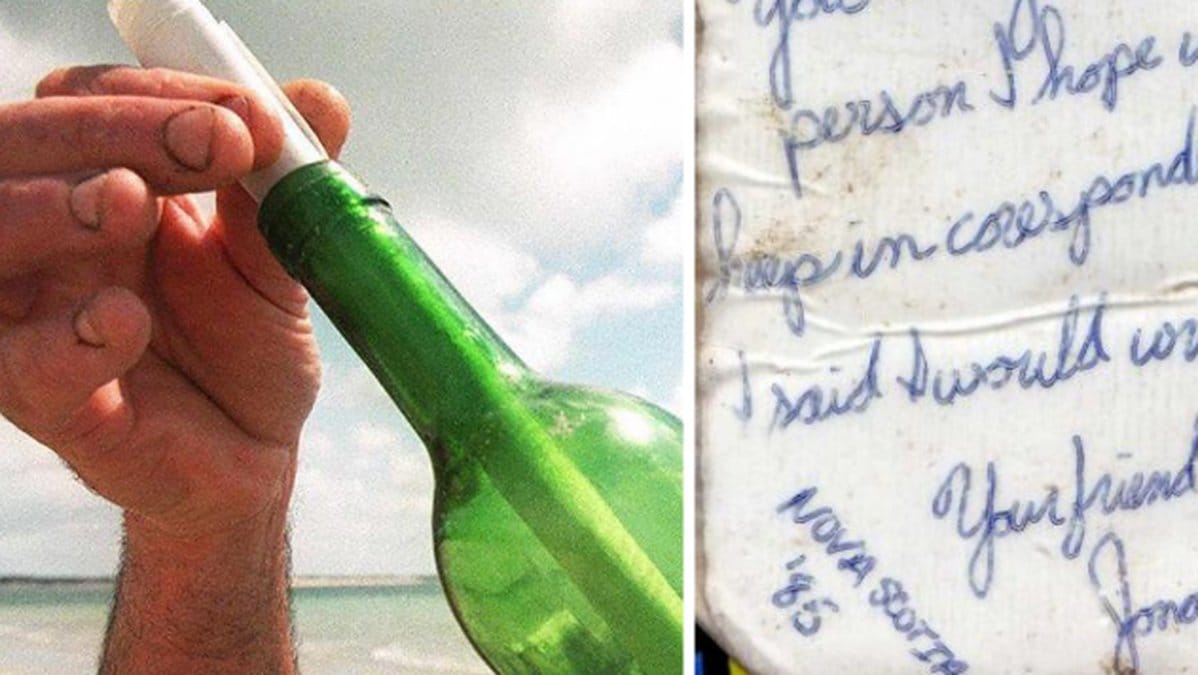 You
person I hope
keep in corespond
I said I would
Your friend
Jona
NOVA SCOTIA
'85